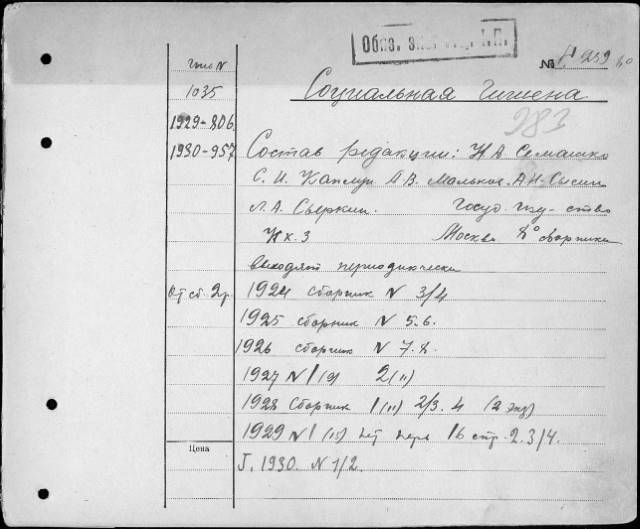 Обяз. экз.
№ 259
Инв N
1035
Социальная гигиена
283
1929-806
1930-957
Состав редакции: Н А Семашко
С. И. Каплун А В. Мольков. А Н. Сысин
Л. А. Сыркин.
Москва 8° сборники
выходят периодически
1924 сборник N 3/4
1925 сборник N 5.6.
1926 сборник N 7.8.
1927 N 1 (9) 2 (11)
1928 Сборник 1 (11) 2/3. 4 (2 экз)
1929 N 1 (15) нет перв 16 стр. 2. 3/4.
Цена
Г. 1930. N 1/2.